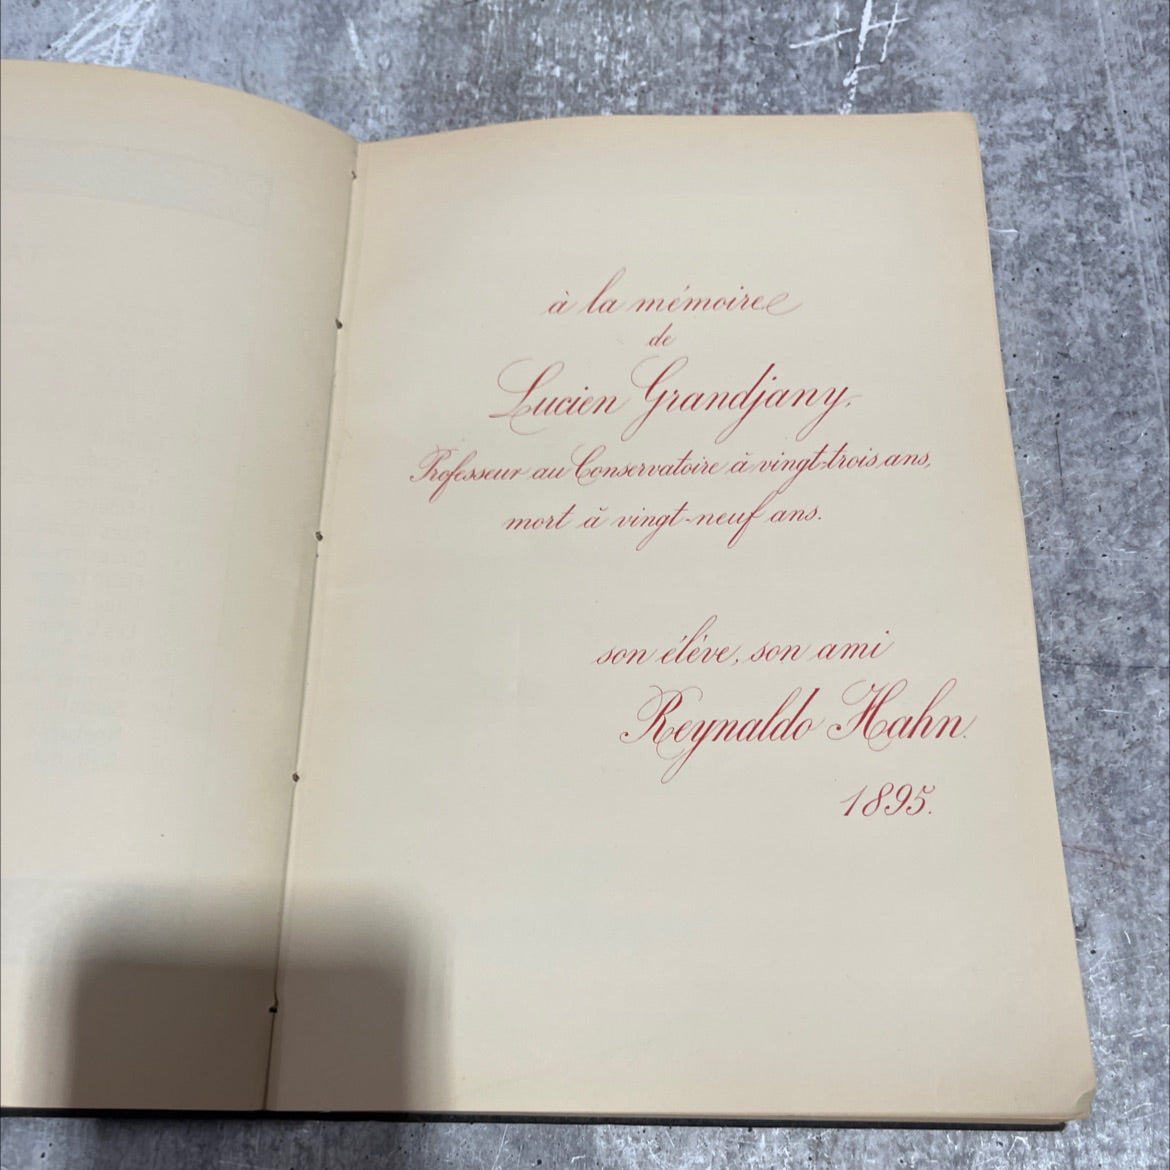 à la mémoire
de
Lucien Grandjany,
Professeur au Conservatoire à vingt-trois ans,
mort à vingt-neuf ans.
son élève, son ami
Reynaldo Hahn.
1895.